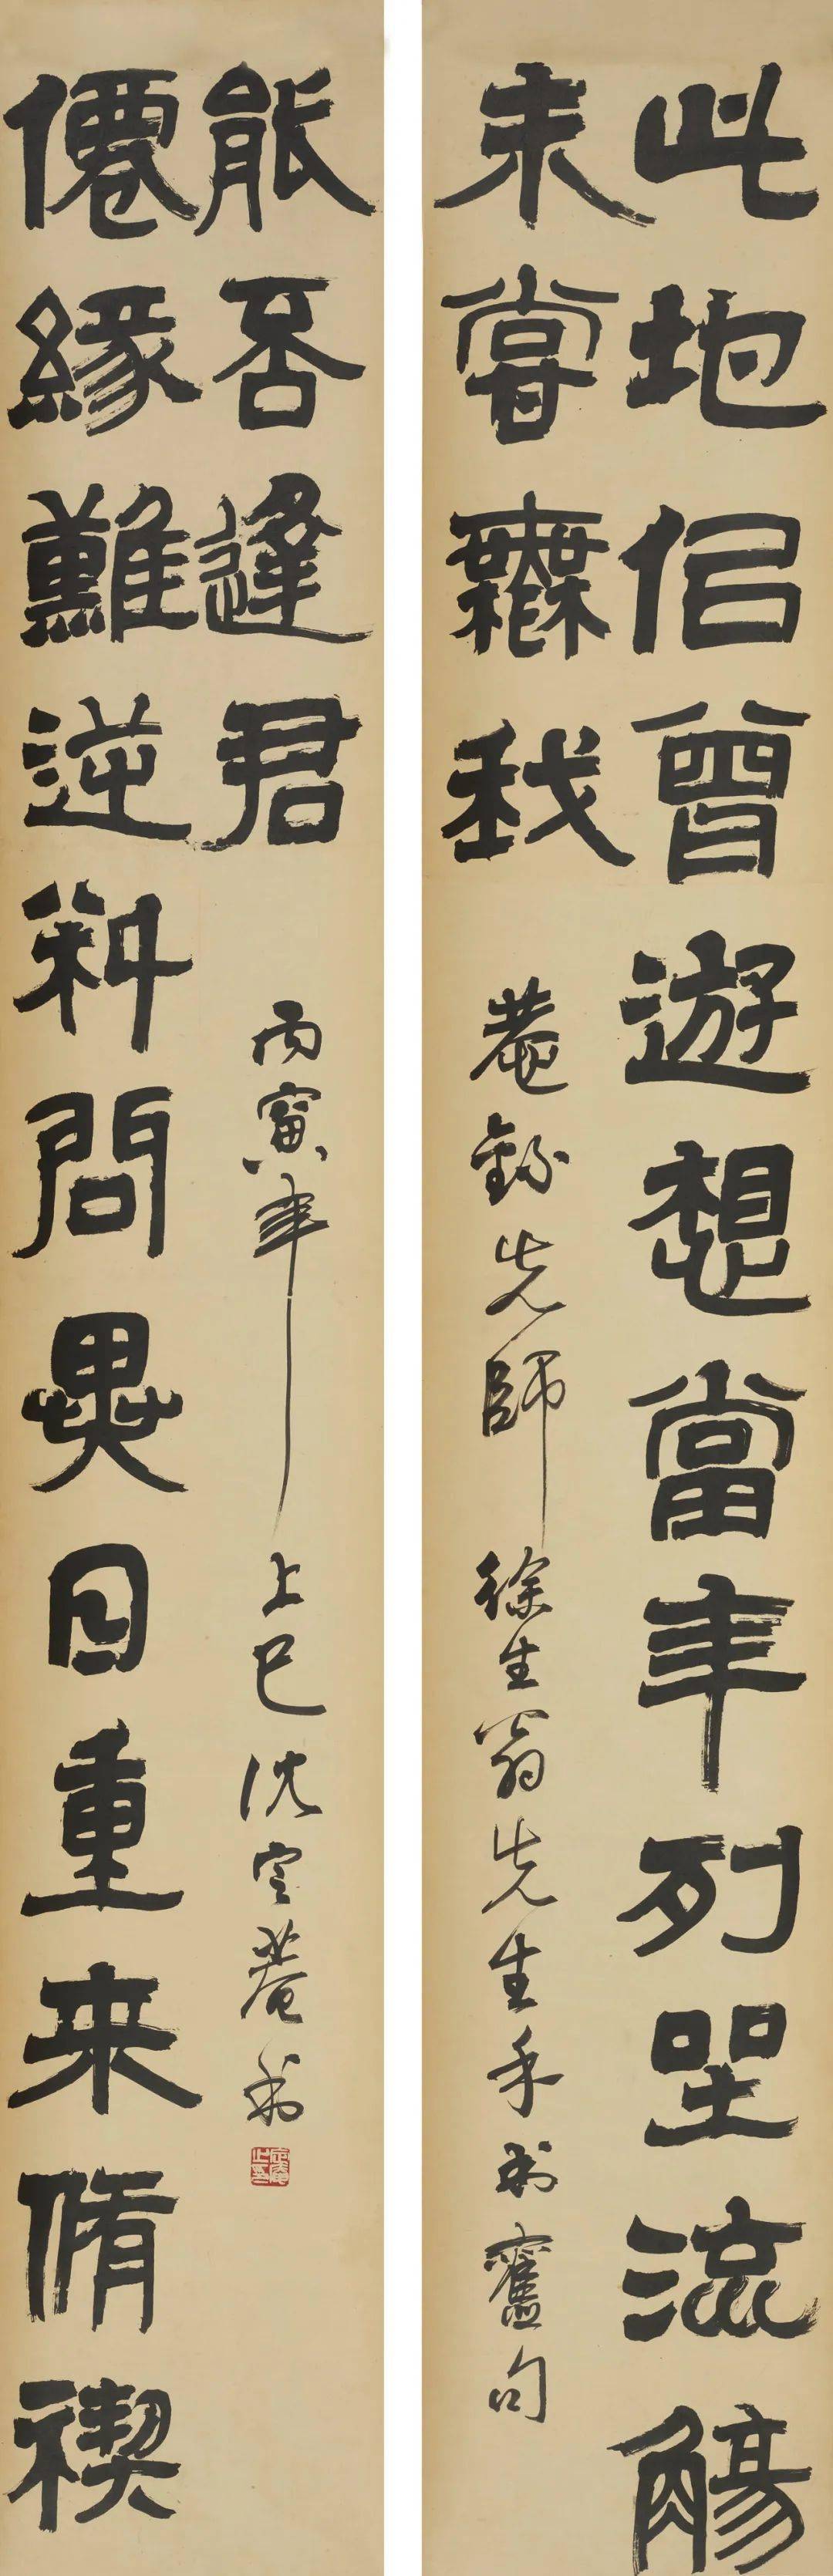 此地佀曾遊想當年列坐流觴
未嘗橆我
菴録先師徐生翁先生手書舊句
僊緣難逆料問異日重来脩禊
能否逢君
丙寅年上巳沈定菴書